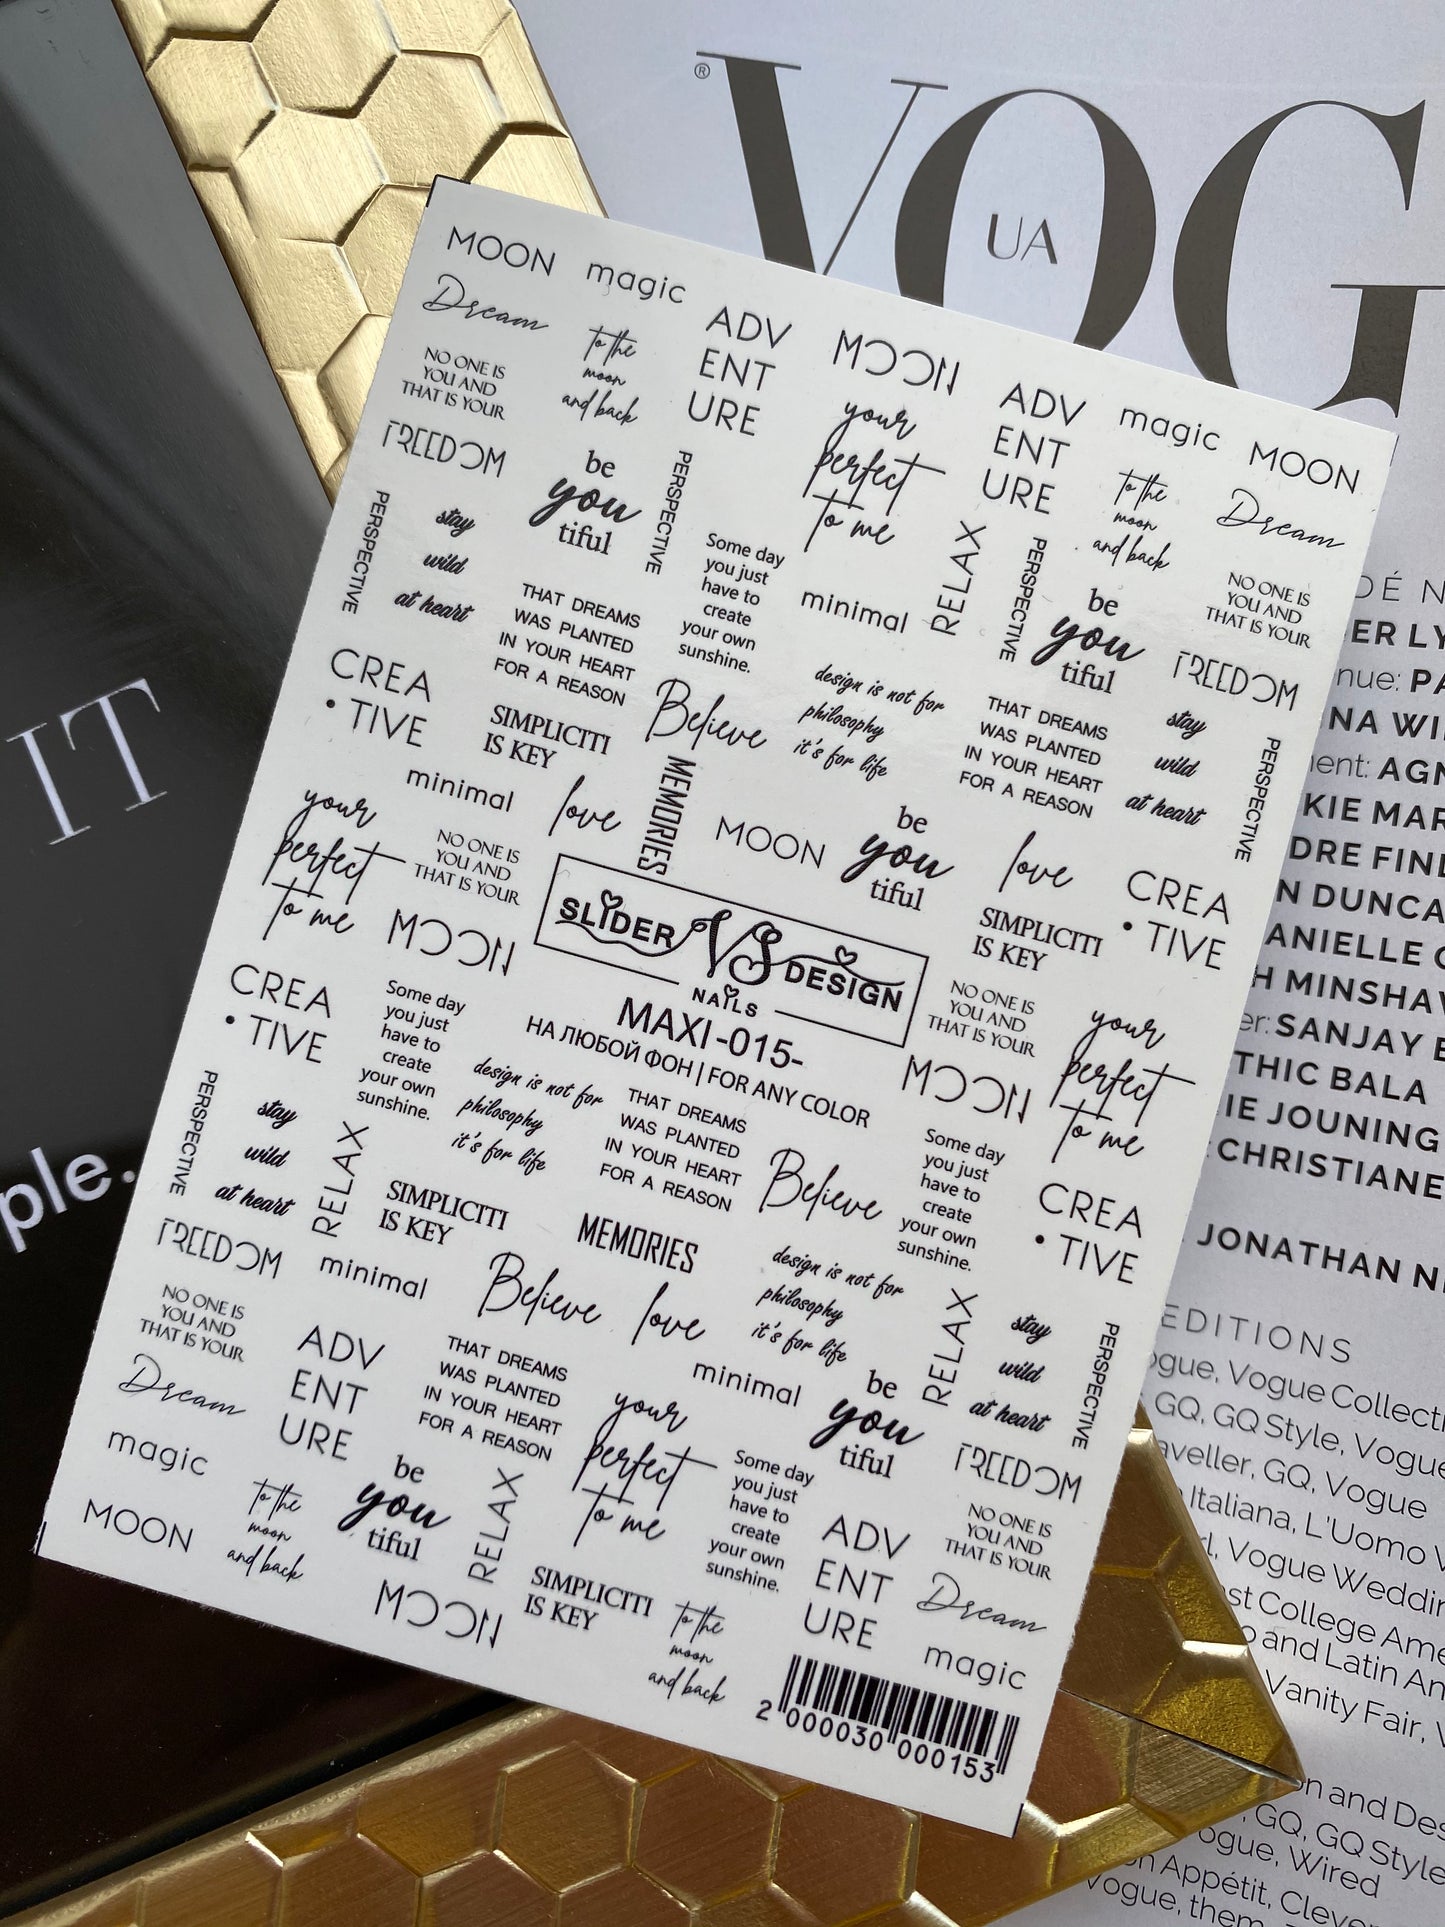 VOG
®
UA
IT
ple.
MOON
magic
Dream
to the
moon
and back
ADV
ENT
URE
MOON
NO ONE IS
YOU AND
THAT IS YOUR
FREEDOM
be
you
tiful
PERSPECTIVE
your
perfect
to me
ADV
ENT
URE
magic
MOON
to the
moon
and back
Dream
PERSPECTIVE
stay
wild
at heart
THAT DREAMS
WAS PLANTED
IN YOUR HEART
FOR A REASON
Some day
you just
have to
create
your own
sunshine.
minimal
RELAX
PERSPECTIVE
be
you
tiful
NO ONE IS
YOU AND
THAT IS YOUR
FREEDOM
CREA
• TIVE
SIMPLICITI
IS KEY
Believe
design is not for
philosophy
it's for life
THAT DREAMS
WAS PLANTED
IN YOUR HEART
FOR A REASON
stay
wild
at heart
PERSPECTIVE
minimal
love
MEMORIES
MOON
be
you
tiful
love
CREA
• TIVE
your
perfect
to me
NO ONE IS
YOU AND
THAT IS YOUR
MOON
SLIDER VS DESIGN
NAILS
MAXI -015-
НА ЛЮБОЙ ФОН | FOR ANY COLOR
SIMPLICITI
IS KEY
NO ONE IS
YOU AND
THAT IS YOUR
your
perfect
to me
MOON
CREA
• TIVE
Some day
you just
have to
create
your own
sunshine.
design is not for
philosophy
it's for life
THAT DREAMS
WAS PLANTED
IN YOUR HEART
FOR A REASON
Believe
Some day
you just
have to
create
your own
sunshine.
CREA
• TIVE
PERSPECTIVE
stay
wild
at heart
RELAX
SIMPLICITI
IS KEY
MEMORIES
design is not for
philosophy
it's for life
FREEDOM
minimal
Believe
love
RELAX
stay
wild
at heart
PERSPECTIVE
NO ONE IS
YOU AND
THAT IS YOUR
ADV
ENT
URE
THAT DREAMS
WAS PLANTED
IN YOUR HEART
FOR A REASON
minimal
be
you
tiful
FREEDOM
Dream
magic
your
perfect
to me
Some day
you just
have to
create
your own
sunshine.
NO ONE IS
YOU AND
THAT IS YOUR
MOON
to the
moon
and back
be
you
tiful
RELAX
ADV
ENT
URE
Dream
MOON
SIMPLICITI
IS KEY
to the
moon
and back
magic
2 000030 000153
DÉ N
ER LY
nue: PA
NA WI
ent: AGN
KIE MAR
DRE FIND
N DUNCA
ANIELLE
H MINSHA
er: SANJAY
THIC BALA
IE JOUNING
CHRISTIANE
JONATHAN N
EDITIONS
ogue, Vogue Collecti
GQ, GQ Style, Vogue
aveller, GQ, Vogue
Italiana, L'Uomo V
rl, Vogue Weddin
st College Ame
o and Latin An
Vanity Fair, V
on and Des
GQ, GQ Style
ogue, Wired
on Appétit, Clever
Vogue, them